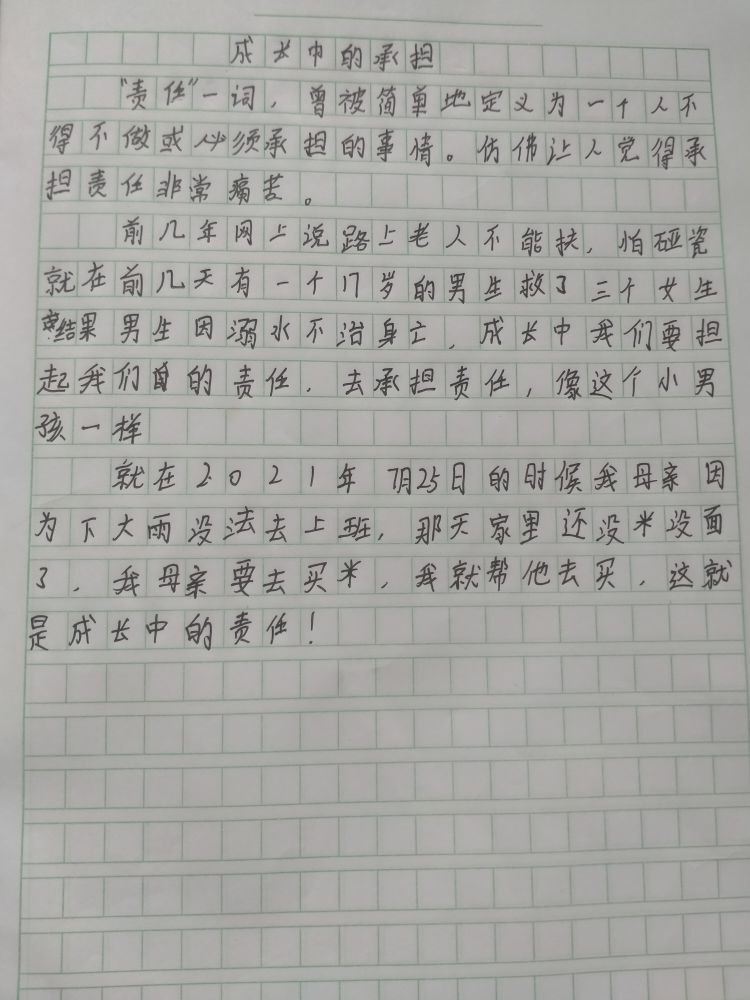 成长中的承担
“责任”一词，曾被简单地定义为一个人不
得不做或必须承担的事情。仿佛让人觉得承
担责任非常痛苦。
前几年网上说路上老人不能扶，怕碰瓷
就在前几天有一个17岁的男生救了三个女生
结果男生因溺水不治身亡，成长中我们要担
起我们的责任．去承担责任，像这个小男
孩一样
就在2021年7月25日的时候我母亲因
为下大雨没法去上班，那天家里还没米没面
了，我母亲要去买米，我就帮他去买．这就
是成长中的责任！